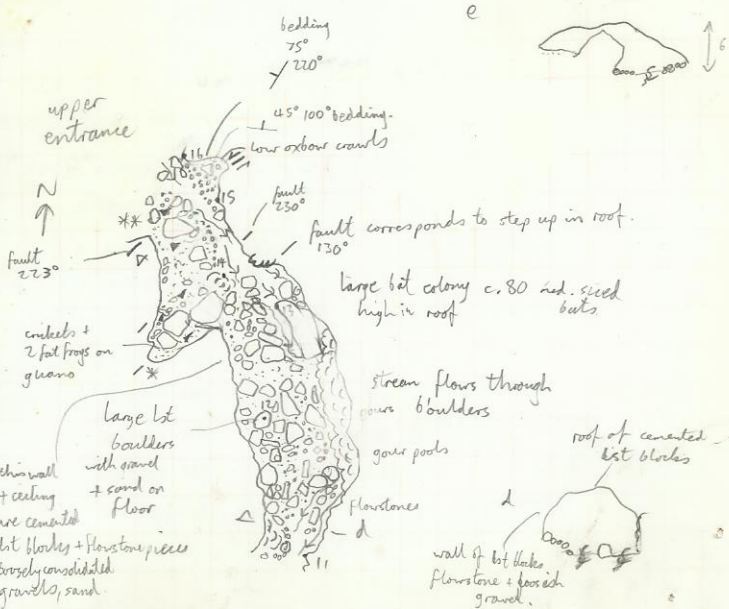 e
bedding
75°
220°
6
upper
entrance
45° 100° bedding.
low oxbow crawls
16
15
N
fault
230°
fault corresponds to step up in roof.
130°
**
fault
223°
14
13
large bat colony c. 80 med. sized
high in roof bats
crickets +
2 fat frogs on
guano
*
stream flows through
gours b'oulders
large lst
boulders
with gravel
+ sand on
floor
12
gour pools
roof of cemented
lst blocks
this wall
+ ceiling
are cemented
lst blocks + flowstone pieces
loosely consolidated
gravels, sand.
flowstones
d
d
11
wall of lst blocks
flowstone + looseish
gravel.